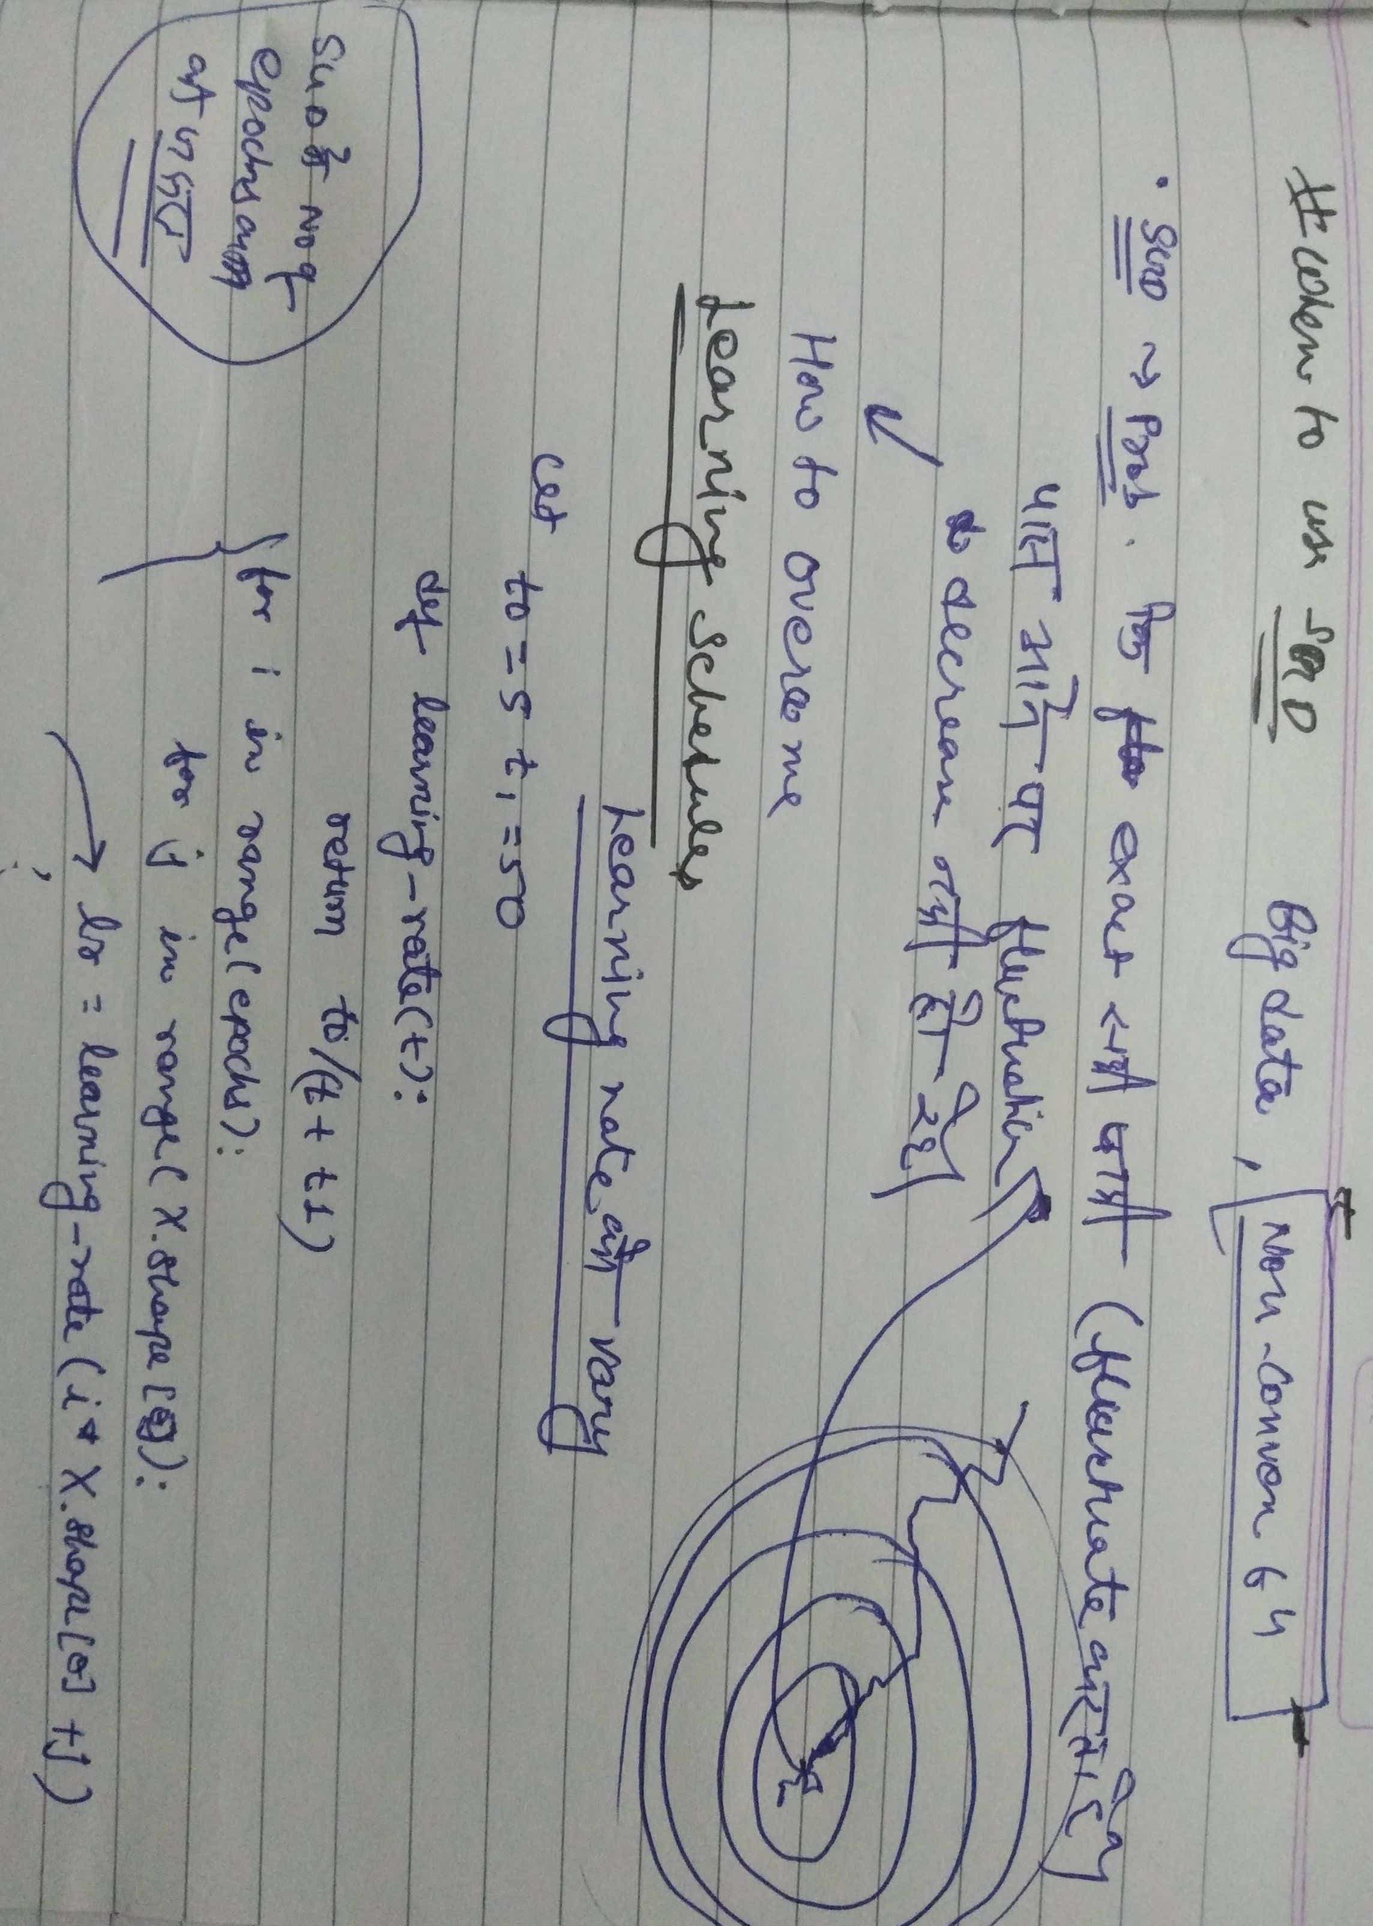 # When to use SGD
Big data, Non-Convex
• SGD → Prob. exact नहीं (fluctuate करता है)
पास आने पर fluctuation
decrease नहीं हो रहा
How to overcome
Learning schedules
Learning rate को vary
let
t0 = 5 t1 = 50
def learning-rate(t):
return t0/(t + t1)
for i in range(epochs):
for j in range(X.shape[0]):
lr = learning-rate(i * X.shape[0] + j)
SGD में No of
epochs कम